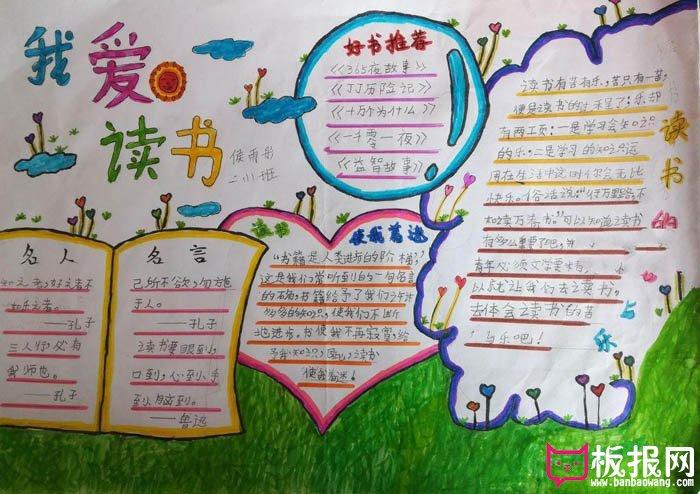 我爱读书
二小班
好书推荐
《365夜故事》
《JJ历险记》
《十万个为什么》
《一千零一夜》
《益智故事》
名人
知之者,好之者不
如乐之者。
——孔子
三人行,必有
我师也。
——孔子
名言
己所不欲,勿施
于人。
——孔子
读书要眼到,
口到,心到,手
到,脑到。
——鲁迅
读书
使我着迷
"书籍是人类进步的阶梯,"
这是我们常听到的一句名言
的确,书籍给予了我们许许
多多的知识,使我们不断
地进步。书使我不再寂寞,给
予我知识,因此,读书
使我着迷!
读书的
苦与乐
读书有苦有乐,苦只有一苦,
便是读书的时
有两工页:一是学习会知识
的乐;二是学习的知识运
用在生活中这时你会无比
快乐。俗话说:"行万里路,不
如读万卷书。"可以知道读书
有多么重要了吧,
青年必须
以就让我们去读书。
去体会读书的苦
与乐吧!
板报网
www.banbaowang.com